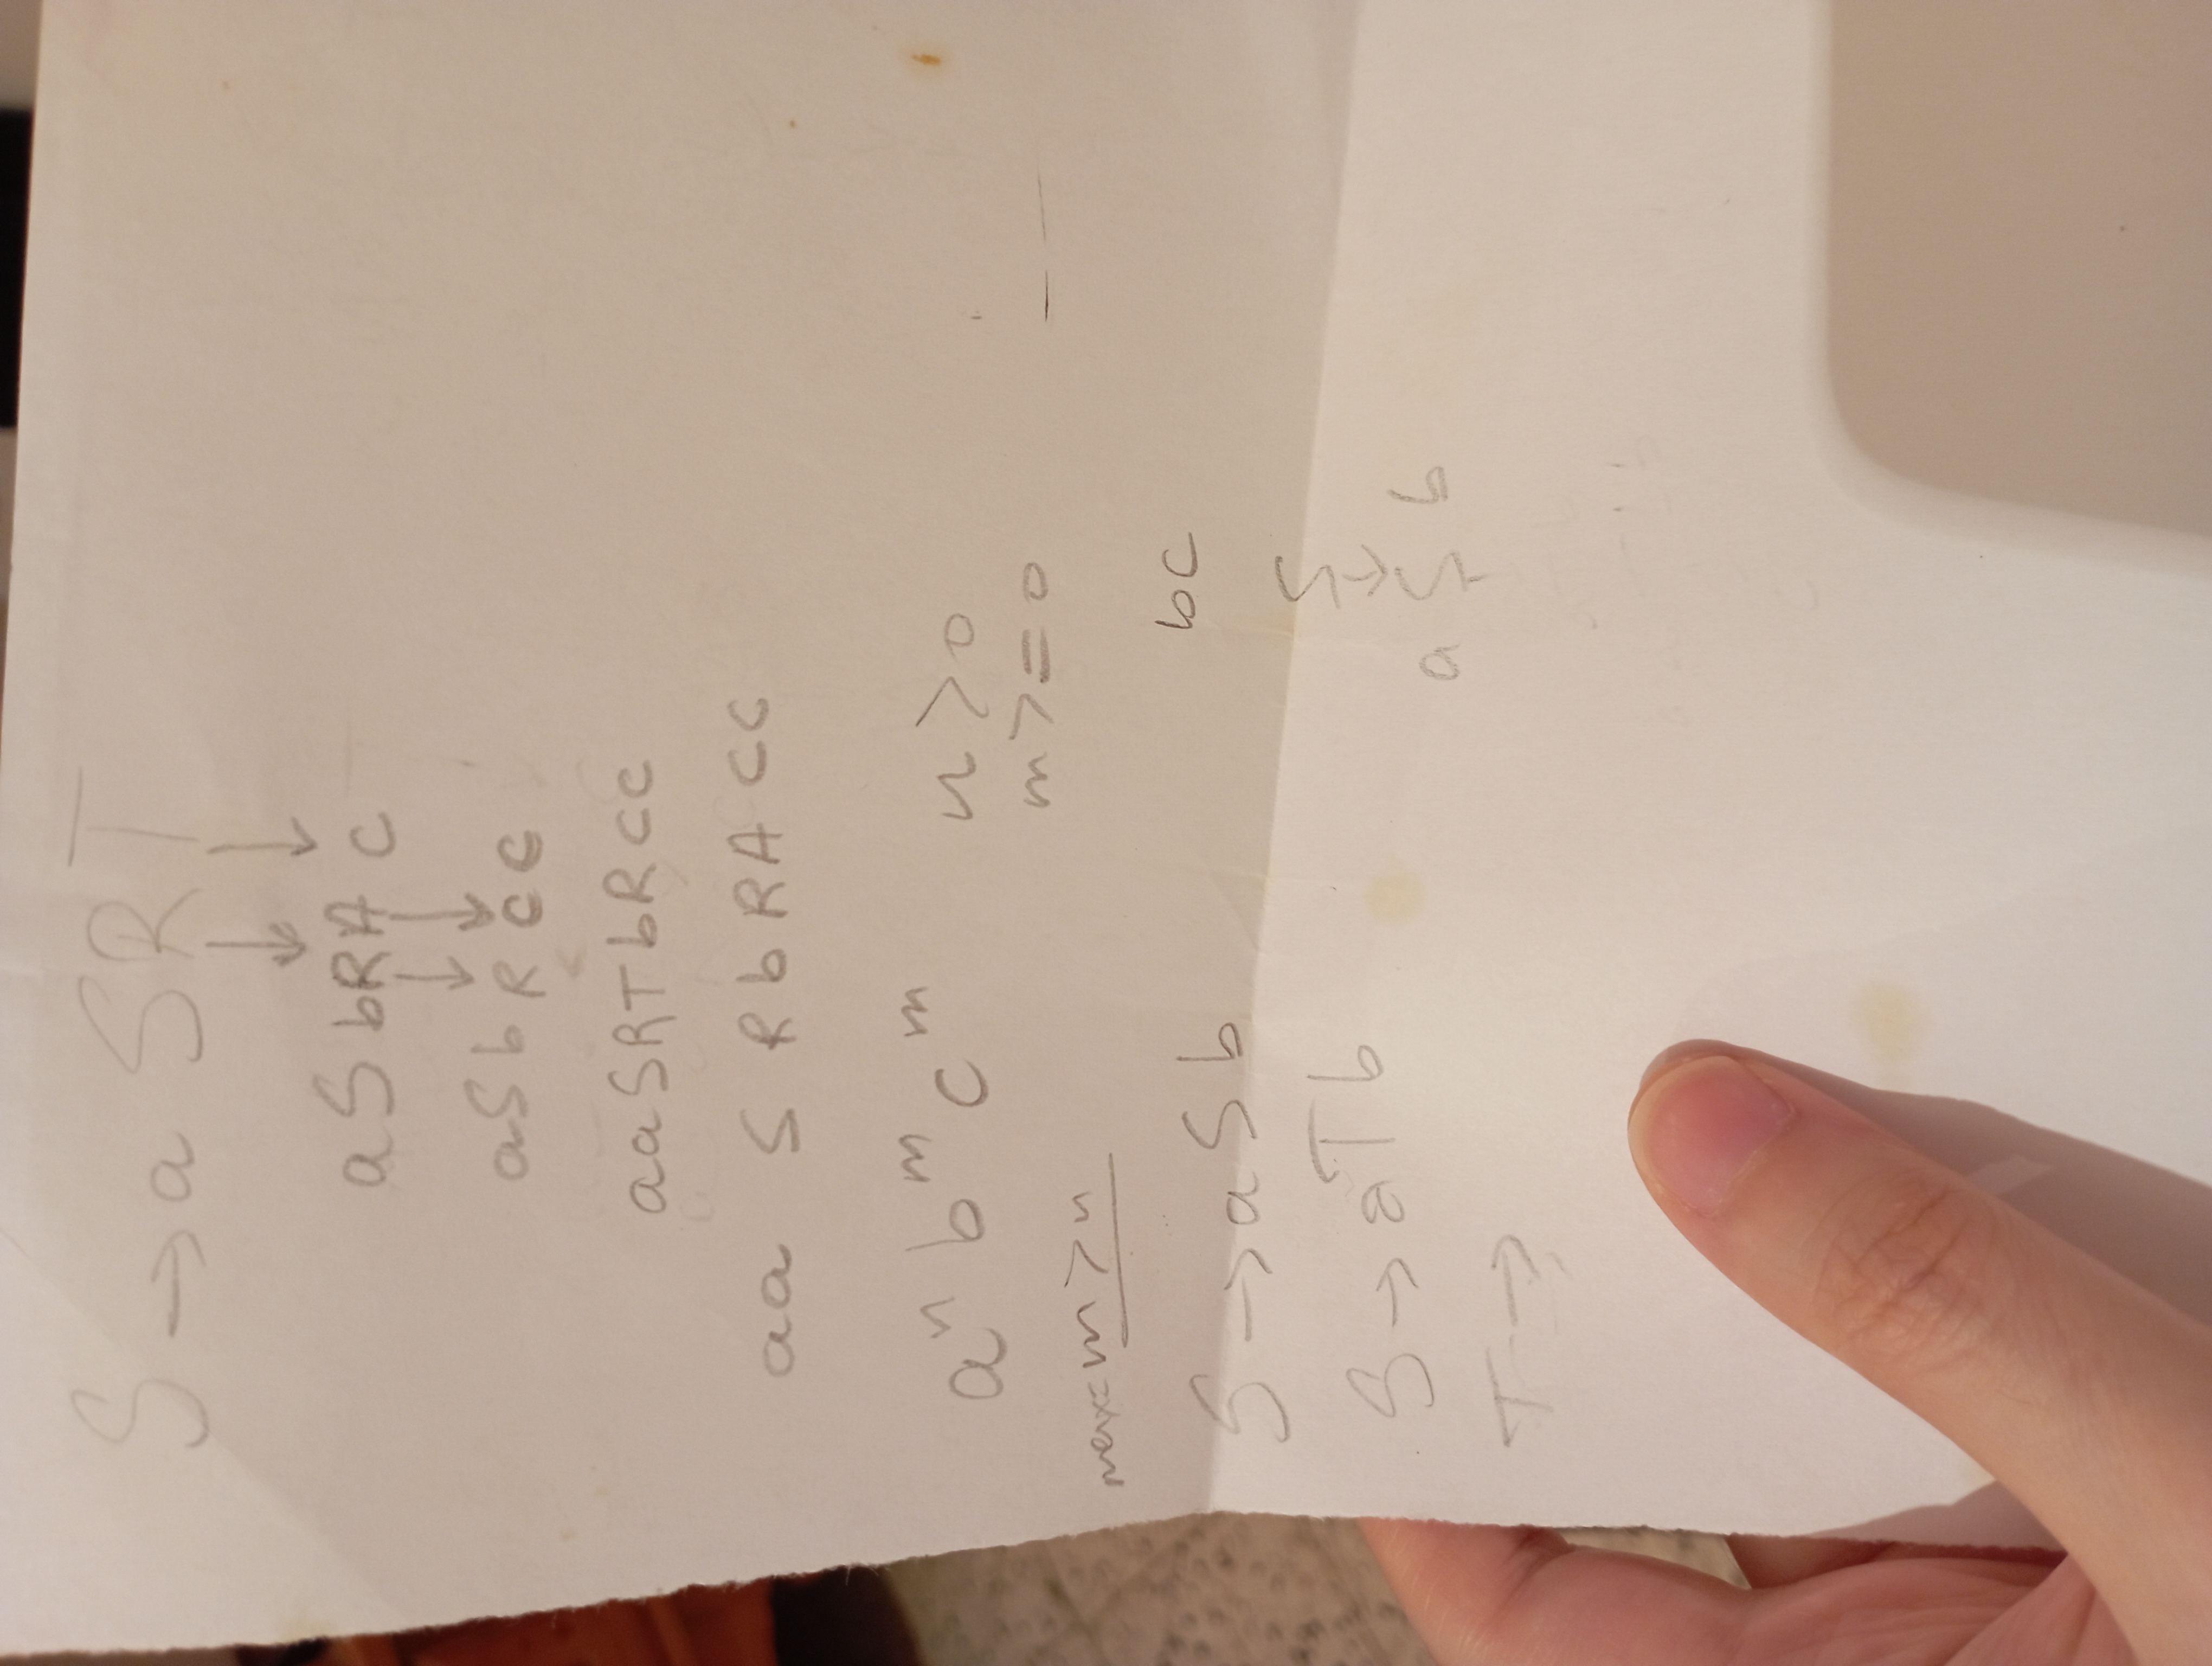 S → a S R T
a S b R A c
a S b R c c
a a S R T b R c c
a a S R b R A c c
aⁿ bᵐ cᵐ n > 0
m >= 0
max = m > n
bc
S → a S b
S
S → a T b
a S b
T →